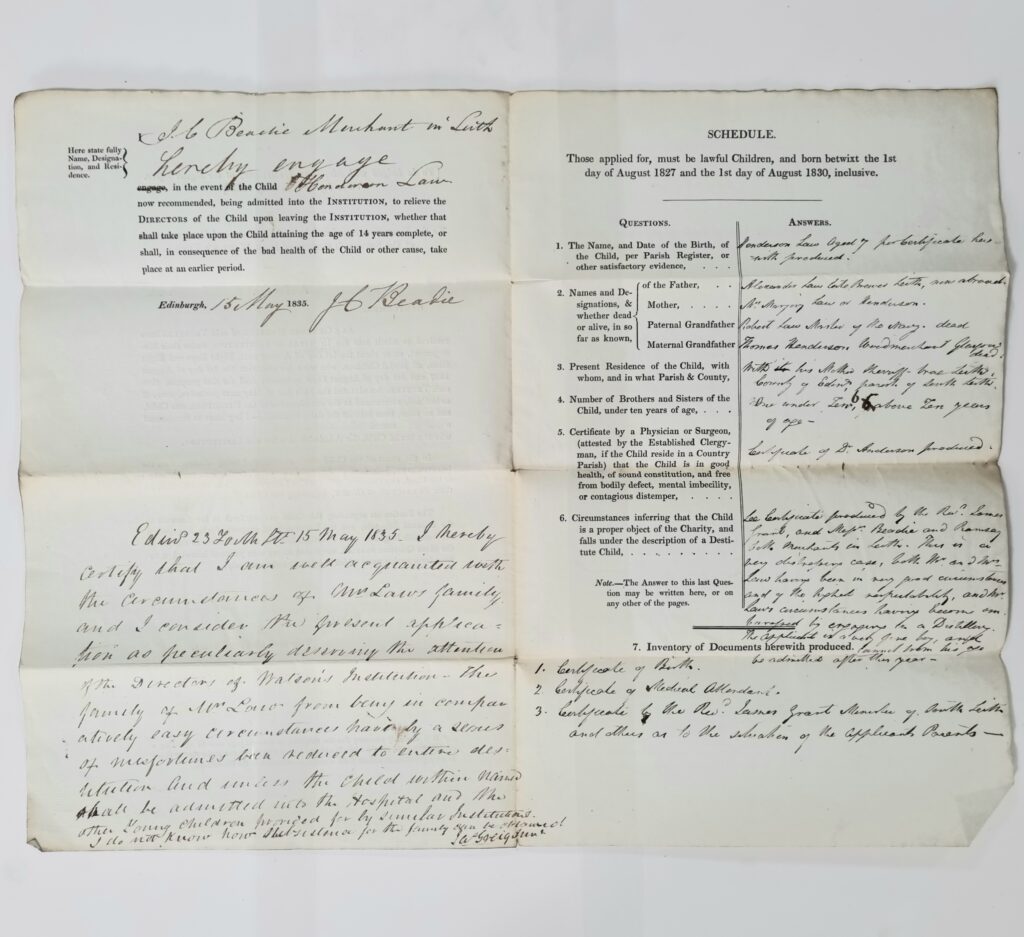 J C Beadie Merchant in Leith
Here state fully
Name, Designa-
tion, and Resi-
dence.
hereby engage
engage, in the event of the Child Henderson Law
now recommended, being admitted into the INSTITUTION, to relieve the
DIRECTORS of the Child upon leaving the INSTITUTION, whether that
shall take place upon the Child attaining the age of 14 years complete, or
shall, in consequence of the bad health of the Child or other cause, take
place at an earlier period.
Edinburgh, 15 May 1835. J C Beadie
Edinr 23 Forth St. 15 May 1835. I hereby
certify that I am well acquainted with
the circumstances of Mrs Laws family
and I consider the present applica-
tion as peculiarly deserving the attention
of the Directors of Watson's Institution - the
family of Mr Law from being in compar
atively easy circumstances have by a series
of misfortunes been reduced to entire des-
titution and unless the child within named
shall be admitted into the Hospital and the
other Young children provided for by similar Institutions.
I do not know how subsistence for the family can be obtained
Greig Junr
SCHEDULE.
Those applied for, must be lawful Children, and born betwixt the 1st
day of August 1827 and the 1st day of August 1830, inclusive.
QUESTIONS.
ANSWERS.
1. The Name, and Date of the Birth, of
the Child, per Parish Register, or
other satisfactory evidence, . . . .
Henderson Law aged 7 per Certificate here-
with produced.
2. Names and De-
signations, &
whether dead
or alive, in so
far as known,
of the Father, . .
Alexander Law late Brewer Leith, now abroad.
Mother, . . . .
Mrs Marjory Law or Henderson.
Paternal Grandfather
Robert Law Master of the Navy. dead
Maternal Grandfather
Thomas Henderson Woodmerchant Glasgow
dead.
3. Present Residence of the Child, with
whom, and in what Parish & County,
With his Mother Sherriff brae Leith,
County of Edinr, parish of South Leith.
4. Number of Brothers and Sisters of the
Child, under ten years of age, . . . .
One under Ten, 6 above Ten years
of age -
5. Certificate by a Physician or Surgeon,
(attested by the Established Clergy-
man, if the Child reside in a Country
Parish) that the Child is in good
health, of sound constitution, and free
from bodily defect, mental imbecility,
or contagious distemper, . . . . .
Certificate of Dr Anderson produced.
6. Circumstances inferring that the Child
is a proper object of the Charity, and
falls under the description of a Desti-
tute Child, . . . . . . . . .
See Certificate produced by the Revd. James
Grant, and Messrs. Beadie and Ramsay
both Merchants in Leith. This is a
very distressing case, both Mr and Mrs
Law having been in very good circumstances
and of the highest respectability, and Mr.
Law's circumstances having become em
barrassed by engaging in a Distillery.
The applicant is a very fine boy, and
cannot from his age
be admitted after this year -
Note.—The Answer to this last Ques-
tion may be written here, or on
any other of the pages.
7. Inventory of Documents herewith produced.
1. Certificate of Birth.
2. Certificate of Medical Attendant.
3. Certificate by the Revd. James Grant Minister of South Leith
and others as to the situation of the Applicants Parents —